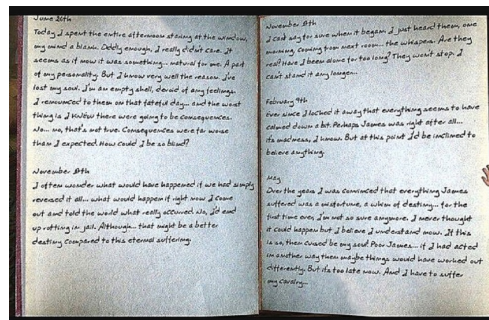 June 26th
Today I spent the entire afternoon staring at the window,
my mind a blank. Oddly enough, I really didn't care. It
seems as if now it was something... natural for me. A part
of my personality. But I know very well the reason. I've
lost my soul. I'm an empty shell, devoid of any feelings.
I renounced to them on that fateful day... and the worst
thing is I knew there were going to be consequences.
No... no, that's not true. Consequences were far worse
than I expected. How could I be so blind?
November 18th
I often wonder what would have happened if we had simply
reversed it all... what would happen if right now I come
out and told the world what really occurred. No, I'd end
up rotting in jail. Although... that might be a better
destiny compared to this eternal suffering.
November
I can't say for sure when it began. I just heard them, one
morning, coming from next room... the whispers. Are they
real? Have I been alone for too long? They won't stop. I
can't stand it any longer...
February 9th
Ever since I locked it away that everything seems to have
calmed down a bit. Perhaps James was right after all...
its madness, I know. But at this point I'd be inclined to
believe anything.
May
Over the years I was convinced that everything James
suffered was a misfortune, a whim of destiny... for the
first time ever, I'm not so sure anymore. I never thought
it could happen but I believe I understand now. If this
is so, then cursed be my soul! Poor James... if I had acted
in another way then maybe things would have worked out
differently. But its too late now. And I have to suffer
my